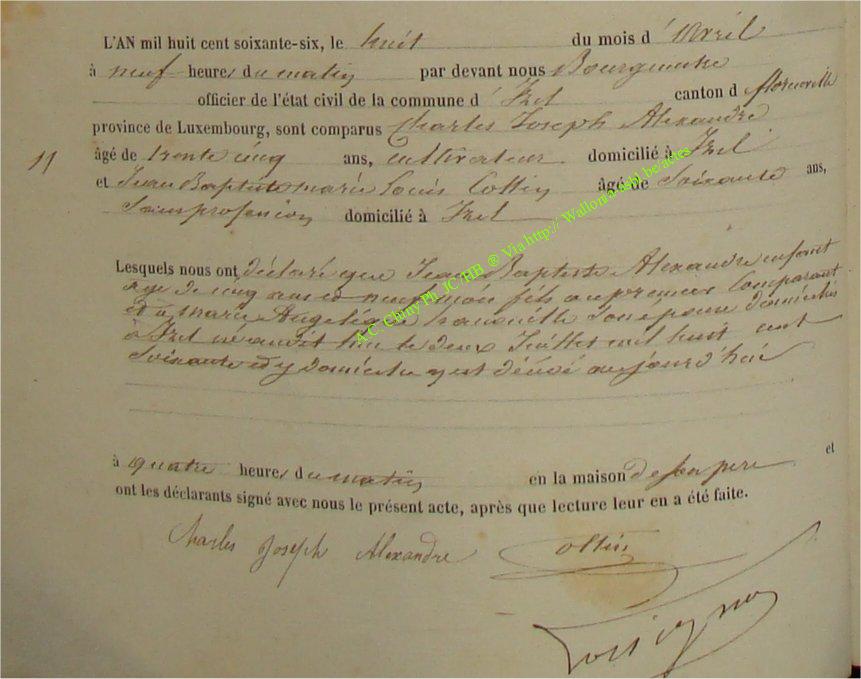 L'AN mil huit cent soixante-six, le huit du mois d' Avril
à neuf heures du matin par devant nous Bourgmestre
officier de l'état civil de la commune d' Izel canton d florenville
province de Luxembourg, sont comparus Charles Joseph Alexandre
11 âgé de trente cinq ans, cultivateur domicilié à Izel
et Jean Baptiste marie Louis Collin âgé de Soixante ans,
Sans profession domicilié à Izel
Lesquels nous ont déclaré que Jean Baptiste Alexandre enfant
age de cinq ans et neuf mois fils au premier Comparant
et à marie Angelique son epouse domiciliés
à Izel né audit lieu le deux Juillet mil huit cent
Soixante et y domicilié est décédé aujourd'hui
à quatre heures du matin en la maison de son pere et
ont les déclarants signé avec nous le présent acte, après que lecture leur en a été faite.
Charles Joseph Alexandre Collin
A.C. Chiny Ph. JC HB @ Via http:// Wallonia asbl.be/actes